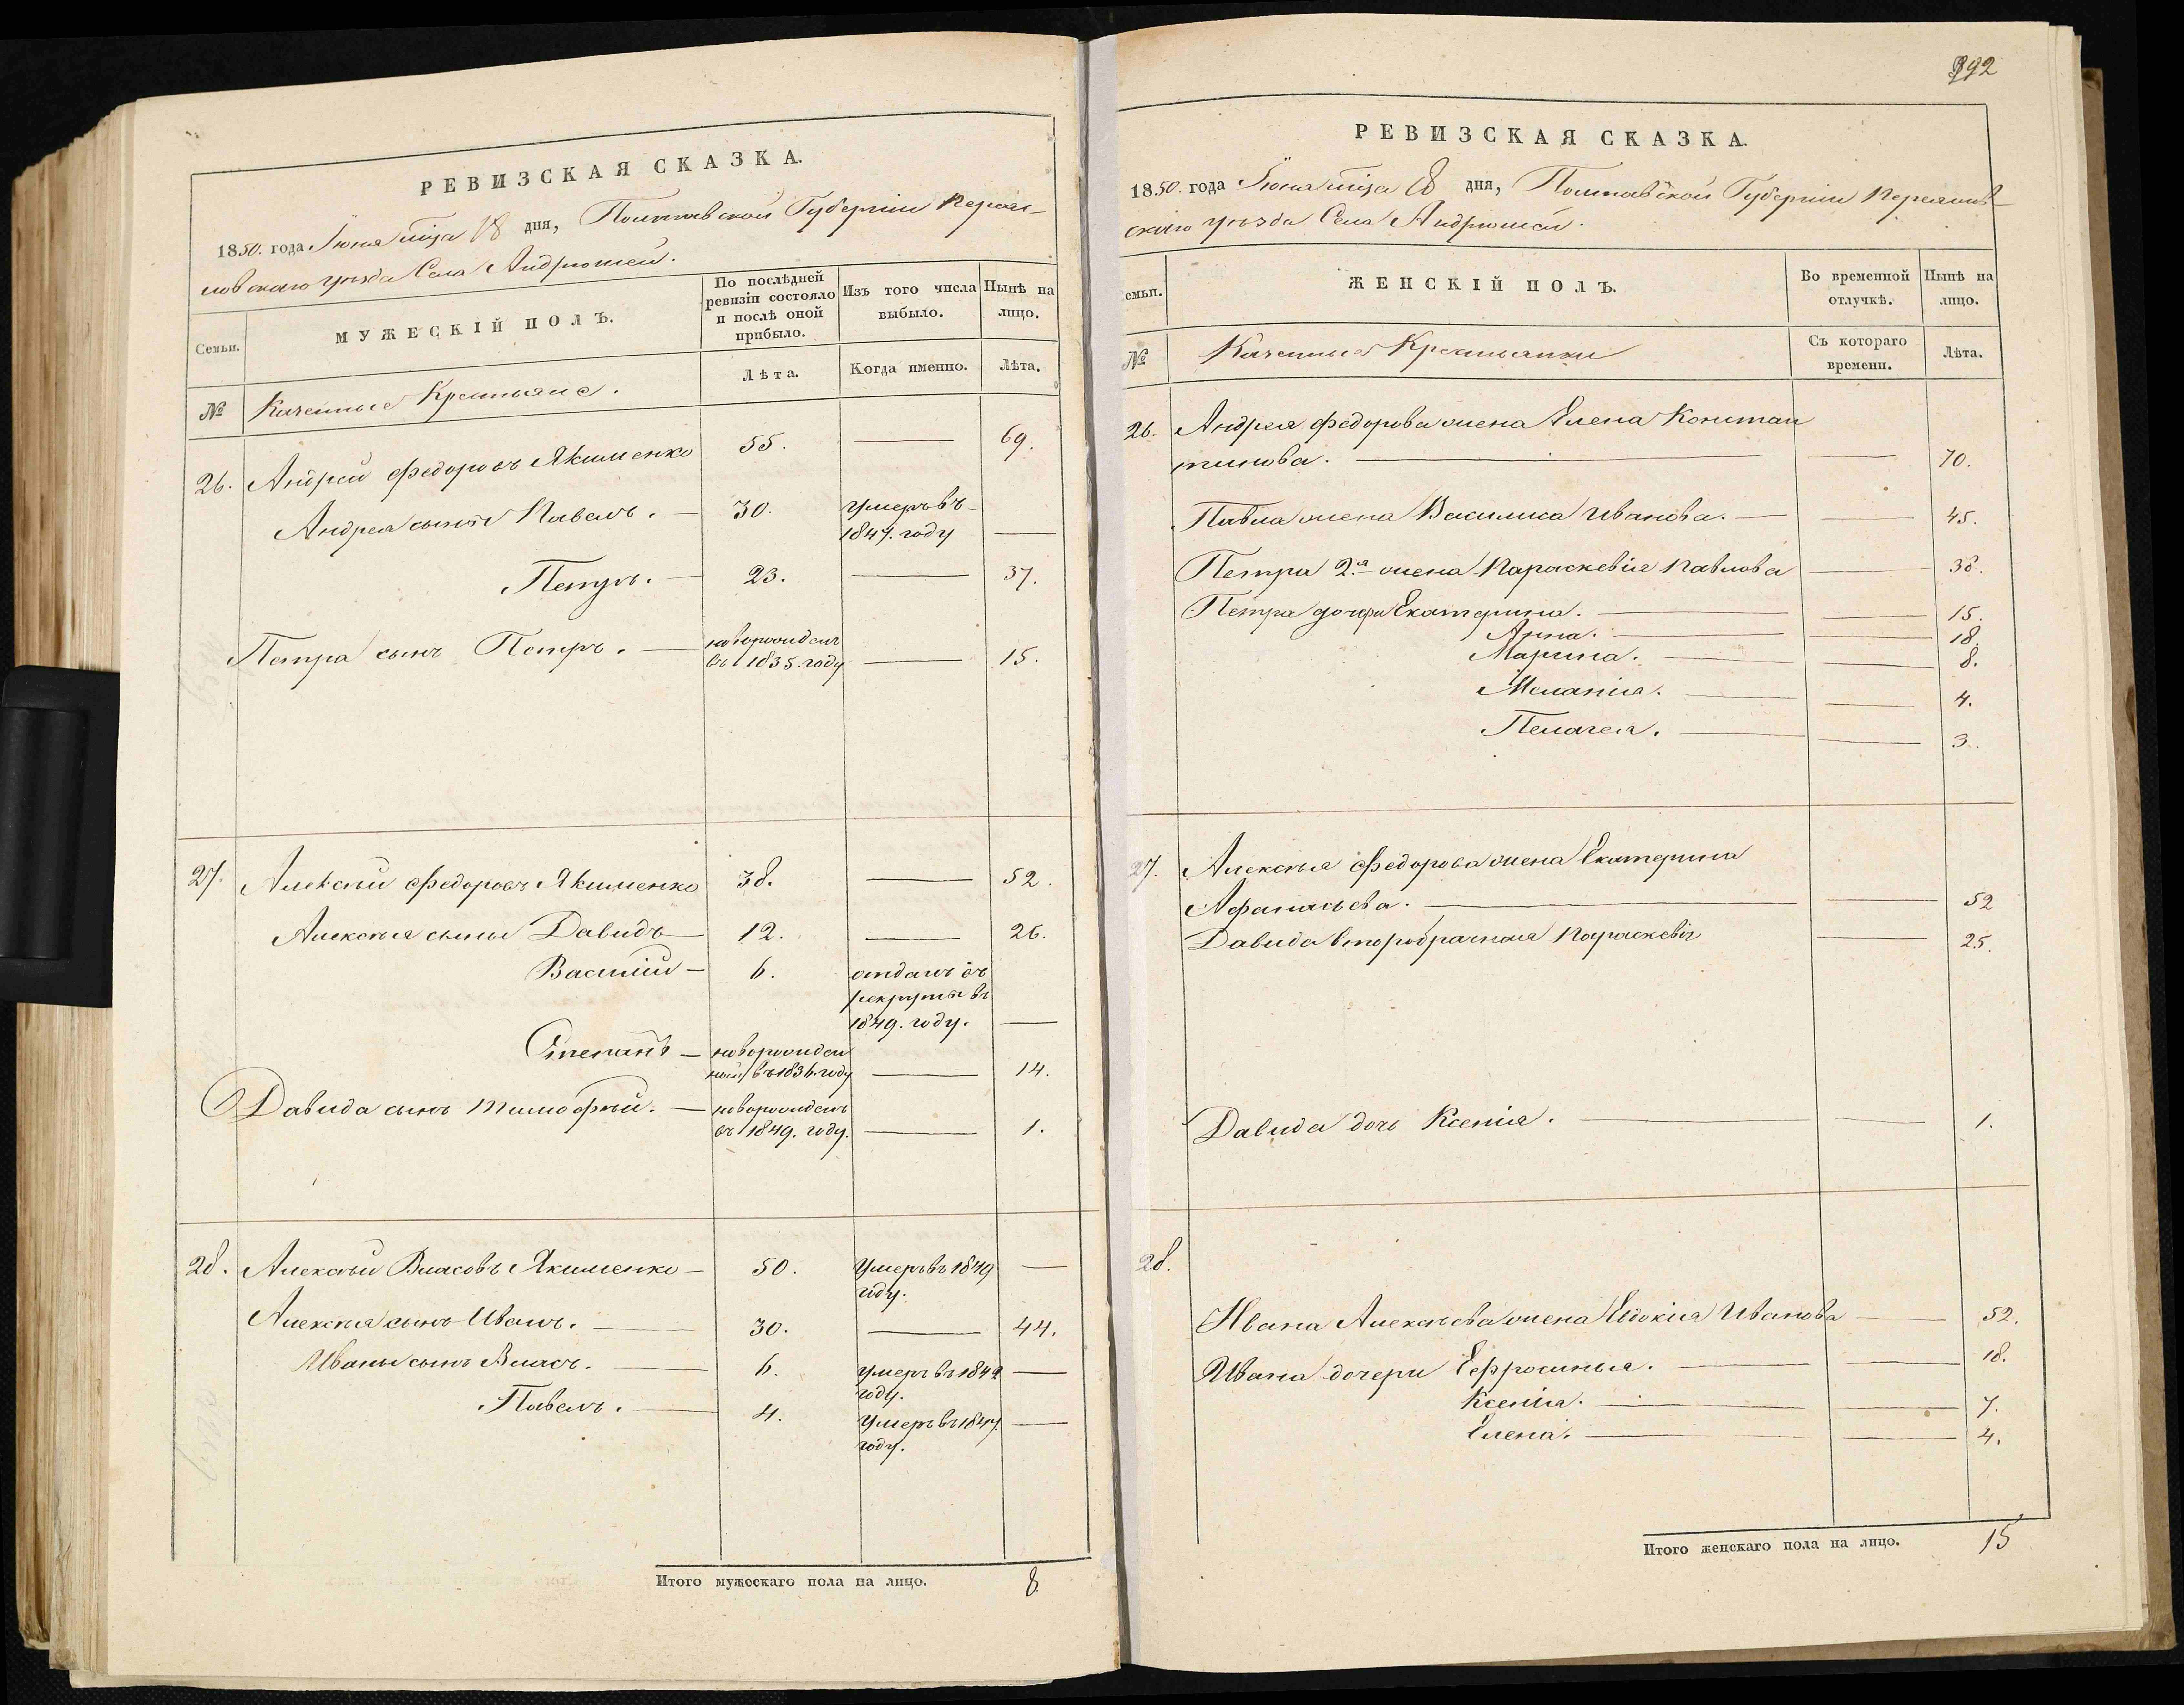 РЕВИЗСКАЯ СКАЗКА.
1850. года Июня мца 18 дня, Полтавской Губерніи Переяс-
лов скаго уѣзда Села Андрюшей.
Семьи.
МУЖЕСКІЙ ПОЛЪ.
По послѣдней ревизіи состояло и послѣ оной прибыло.
Изъ того числа выбыло.
Нынѣ на лицо.
№ Казенные Крестьяне.
Лѣта. Когда именно. Лѣта.
26. Андрей Федоровъ Якименко 55. — 69.
Андрея сынъ Павелъ. — 30. умеръ въ
1847. году —
Петръ. — 23. — 37.
Петра сынъ Петръ. — новорожденъ
въ 1835. году — 15.
27. Алексѣй Федоровъ Якименко 38. — 52.
Алексѣя сыны Давидъ — 12. — 26.
Василій — 6. отданъ въ
рекруты въ
1849. году. —
Степанъ — новорожден
ный въ 1836. году — 14.
Давида сынъ Тимофѣй. — новорожденъ
въ 1849. году. — 1.
28. Алексѣй Власовъ Якименко — 50. Умеръ въ 1849 —
году.
Алексѣя сынъ Иванъ. — 30. — 44.
Ивана сынъ Власъ. — 6. умеръ въ 1842 —
году.
Павелъ. — 4. Умеръ въ 1847. —
году.
Итого мужескаго пола на лицо. 8
392
РЕВИЗСКАЯ СКАЗКА.
1850. года Июня мца 18 дня, Полтавской Губерніи Переяслов
скаго уѣзда Села Андрюшей.
емьи.
ЖЕНСКІЙ ПОЛЪ.
Во временной отлучкѣ.
Нынѣ на лицо.
№ Казенные Крестьянки
Съ котораго времени.
Лѣта.
26. Андрея Федорова жена Елена Констан
тинова. — — 70.
Павла жена Василиса Иванова. — — 45.
Петра 2.я жена Параскевія Павлова — 38.
Петра дочери Екатерина. — — 15.
Анна. — — 18.
Марина. — — 8.
Меланія. — — 4.
Пелагея. — — 3.
27. Алексѣя Федорова жена Екатерина
Афанасьева. — — 52
Давида второбрачная Параскевія — 25.
Давида дочь Ксенія. — — 1.
28.
Ивана Алексѣева жена Евдокія Иванова — 52.
Ивана дочери Ефросинья. — — 18.
Ксенія. — — 7.
Елена. — — 4.
Итого женскаго пола на лицо. 15